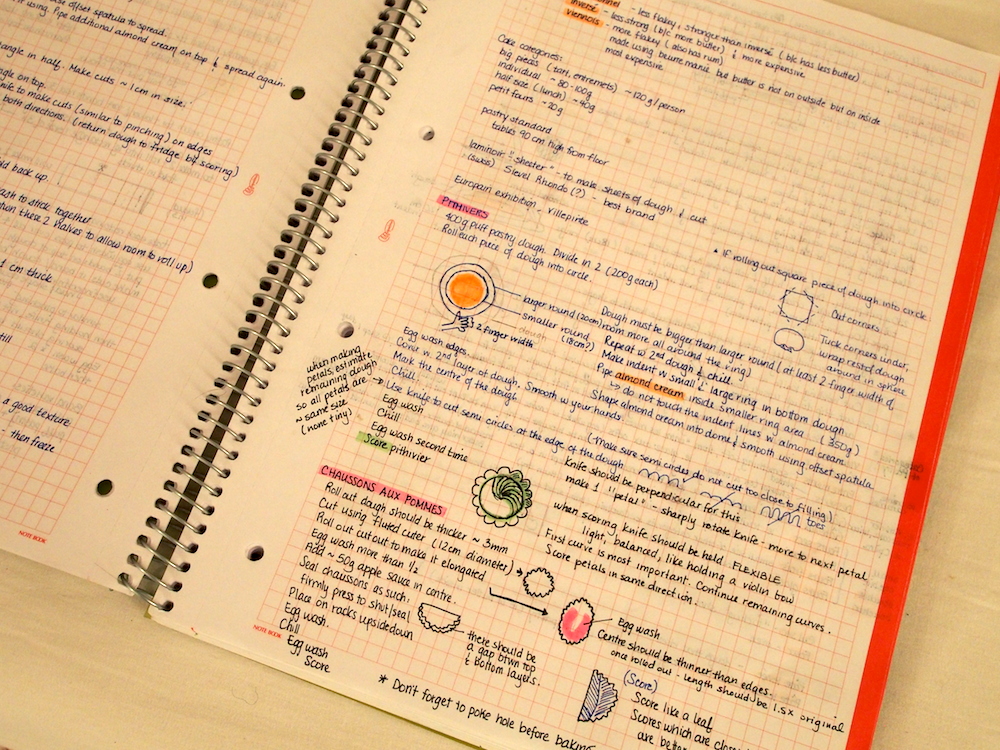 offset spatula to spread.
if using. Pipe additional almond cream on top & spread again.
angle in half. Make cuts ~1cm in size.
on top.
knife to make cuts (similar to pinching) on edges
both directions. (return dough to fridge b/f scoring)
back up.
to stick together
these 2 halves to allow room to roll up)
1 cm thick
a good texture.
- then freeze
NOTE BOOK
inversé
viennois
- less flaky, stronger than inversé (b/c has less butter)
- less strong (b/c more butter) & more expensive
- more flaky (also has rum)
made using beurre manié but butter is not on outside but on inside
most expensive
Cake categories:
big pieces (tart, entremets) ~120g/person
individual ~80-100g
half size (lunch) ~40g
petit fours ~20g
pastry standard
tables 90 cm high from floor
laminoir "sheeter" - to make sheets of dough & cut
(swiss) Rhondo (?) - best brand
Europain exhibition - Villepinte
PITHIVERS
400g puff pastry dough. Divide in 2 (200g each)
Roll each piece of dough into circle.
* If rolling out square piece of dough into circle
Cut corners
Tuck corners under,
wrap rest of dough
around in sphere
larger round (20cm)
smaller round (18cm?)
2 finger width
Dough must be bigger than larger round (at least 2 finger width of
room more all around the ring)
Repeat w 2nd dough & chill
Make indent w small & large ring in bottom dough
Pipe almond cream inside smaller ring area (350g)
↳ do not touch the indent lines w. almond cream
Shape almond cream into dome & smooth using offset spatula
Egg wash edges.
Cover w. 2nd layer of dough. Smooth w your hands.
Mark the centre of the dough
Chill.
→ Use knife to cut semi circles at the edge of the dough
(Make sure semi circles do not cut too close to filling)
Knife should be perpendicular for this
make 1 "petal" - sharply rotate knife - more to next petal
when making
petals, estimate
remaining dough
so all petals are
~ same size
(none tiny)
Egg wash
Chill
Egg wash second time
Score pithivier
when scoring knife should be held FLEXIBLE,
light, balanced, like holding a violin bow
First curve is most important. Continue remaining curves.
Score petals in same direction.
CHAUSSONS AUX POMMES
Roll out dough should be thicker ~3mm
Cut using fluted cuter (12cm diameter)
Roll out cutout to make it elongated
Egg wash more than 1/2
Add ~50g apple sauce in centre.
Seal chaussons as such.
firmly press to shut/seal
Place on racks upsidedown
Egg wash.
Chill
Egg wash
Score
there should be
a gap btwn top
& bottom layers.
Egg wash
Centre should be thinner than edges.
once rolled out - length should be 1.5x original
(Score)
Score like a leaf
Scores which are
are
* Don't forget to poke hole before baking
NOTE BOOK